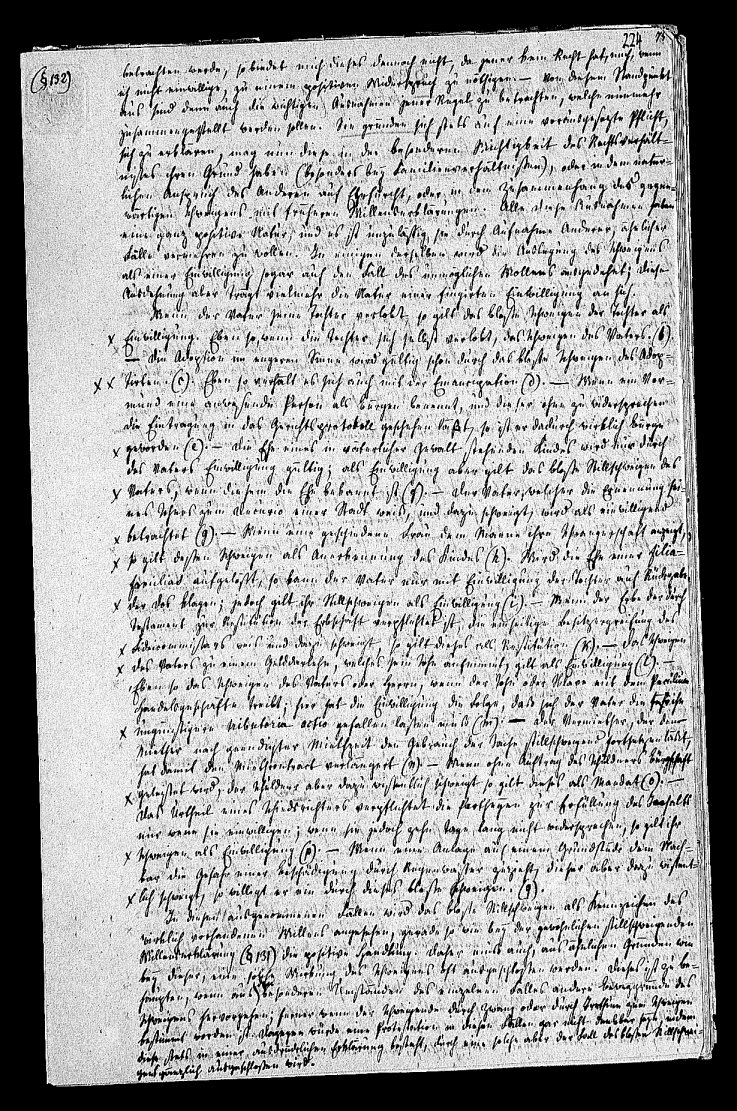 224
(§ 132)
betrachten werde, so bindet mich dieses dennoch nicht, da jener kein Recht hat, mich, wenn
ich nicht einwillige, zu einem positiven Widerspruch zu nöthigen. — Von diesem Standpunkt
aus sind denn auch die wichtigen Ausnahmen jener Regel zu betrachten, welche nunmehr
zusammengestellt werden sollen. Sie gründen sich stets auf eine vorausgesetzte Pflicht,
sich zu erklären, mag nun diese in der besonderen Wichtigkeit des Rechtsverhält-
nisses ihren Grund haben (besonders bey Familienverhältnissen), oder in dem natür-
lichen Anspruch des Anderen auf Ehrfurcht, oder in dem Zusammenhang des gegen-
wärtigen Schweigens mit früheren Willenserklärungen. Alle diese Ausnahmen haben
eine ganz positive Natur, und es ist unzulässig, sie durch Aufnahme Anderer, ähnlicher
Fälle vermehren zu wollen. In einigen derselben wird die Auslegung des Schweigens
als einer Einwilligung sogar auf den Fall des unmöglichen Wollens ausgedehnt; diese
Ausdehnung aber trägt vielmehr die Natur einer fingirten Einwilligung an sich.
Wenn der Vater seine Tochter verlobt, so gilt das bloße Schweigen der Tochter als
x Einwilligung. Eben so wenn die Tochter sich selbst verlobt, das Schweigen des Vaters. (b).
— Die Adoption im engeren Sinne wird gültig schon durch das bloße Schweigen des Adop-
x x tirten. (c). Eben so verhält es sich auch mit der Emancipation (d). — Wenn ein Vor-
mund eine anwesende Person als Bürgen benennt, und dieser ohne zu widersprechen
die Eintragung in das Gerichtsprotokoll geschehen läßt, so ist er dadurch wirklich Bürge
x geworden (e). — Die Ehe eines in väterlicher Gewalt stehenden Kindes wird nur durch
des Vaters Einwilligung gültig; als Einwilligung aber gilt das bloße Stillschweigen des
x Vaters, wenn diesem die Ehe bekannt ist (f). — Der Vater, welcher die Ernennung sei-
nes Sohns zum Decurio einer Stadt weiß, und dazu schweigt, wird als einwilligend
x betrachtet (g). — Wenn eine geschiedene Frau dem Manne ihre Schwangerschaft anzeigt,
x so gilt dessen Schweigen als Anerkennung des Kindes (h). Wird die Ehe einer filia-
familias aufgelöst, so kann der Vater nur mit Einwilligung der Tochter auf Rückgabe
x der dos klagen; jedoch gilt ihr Stillschweigen als Einwilligung (i). — Wenn der Erbe der durch
Testament zur Restitution der Erbschaft verpflichtet ist, die einseitige Besitzergreifung des
x Fideicommissars weiß und dazu schweigt, so gilt dieses als Restitution (k). — Das Schweigen
x des Vaters zu einem Gelddarlehn, welches sein Sohn aufnimmt, gilt als Einwilligung (l). —
Eben so das Schweigen des Vaters oder Herrn, wenn der Sohn oder Sklave mit dem Peculium
Handelsgeschäfte treibt; hier hat die Einwilligung die Folge, daß sich der Vater die
x ungünstigere tributoria actio gefallen lassen muß (m). — Der Vermiether, der dem
Miether nach geendigter Miethzeit den Gebrauch der Sache stillschweigend fortsetzen läßt,
hat damit den Miethcontract verlängert (n). — Wenn ohne Auftrag des Schuldners Bürgschaft
x geleistet wird, der Schuldner aber dazu wissentlich schweigt so gilt dieses als Mandat (o). —
Das Urtheil eines Schiedsrichters verpflichtet die Partheyen zur Erfüllung des Inhalts
nur wenn sie einwilligen; wenn sie jedoch zehn Tage lang nicht widersprechen, so gilt ihr
x Schweigen als Einwilligung (p). — Wenn eine Anlage auf einem Grundstück dem Nach-
bar die Gefahr einer Beschädigung durch Regenwasser zuzieht, dieser aber dazu wissent-
x lich schweigt, so willigt er ein durch dieses bloße Schweigen. (q).
In diesen ausgenommenen Fällen wird das bloße Stillschweigen als Kennzeichen des
wirklich vorhandenen Willens angesehen, gerade so wie bey der gewöhnlichen stillschweigenden
Willenserklärung (§ 131) die positive Handlung. Daher muß auch, aus ähnlichen Gründen wie
bey dieser, eine solche Wirkung des Schweigens oft ausgeschlossen werden. Dieses ist zu be-
haupten, wenn aus besonderen Umständen des einzelnen Falles andere Beweggründe des
Schweigens hervorgehen; ferner wenn der Schweigende durch Zwang oder durch Irrthum zum Schweigen
bestimmt worden ist. Dagegen würde eine Protestation in diesen Fällen gar nicht denkbar seyn, indem
diese stets in einer ausdrücklichen Erklärung besteht, durch eine solche aber der Fall des bloßen Stillschwei-
gens gänzlich ausgeschlossen wird.